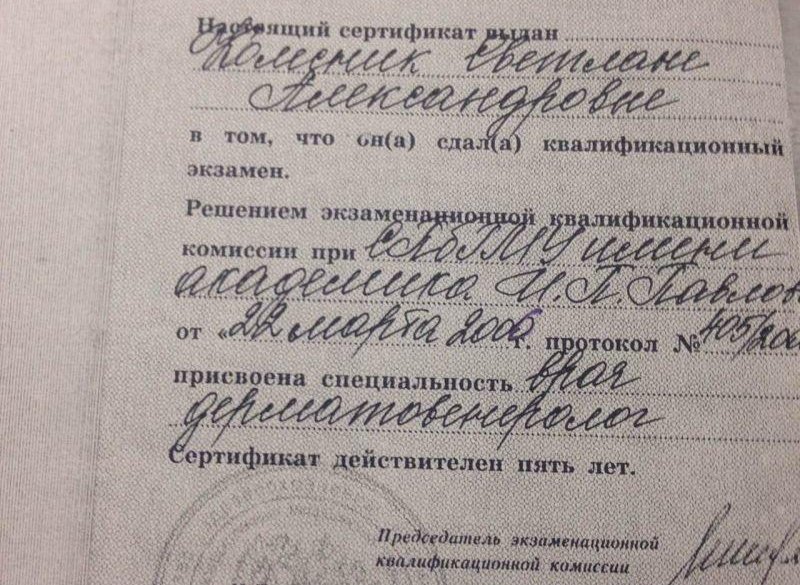 Настоящий сертификат выдан
Колесник Светлане
Александровне
в том, что он(а) сдал(а) квалификационный
экзамен.
Решением экзаменационной квалификационной
комиссии при СПбГМУ имени
академика И. П. Павлов
от «22 марта 2006 г. протокол № 405/200
присвоена специальность врач
дерматовенеролог
Сертификат действителен пять лет.
Председатель экзаменационной
квалификационной комиссии